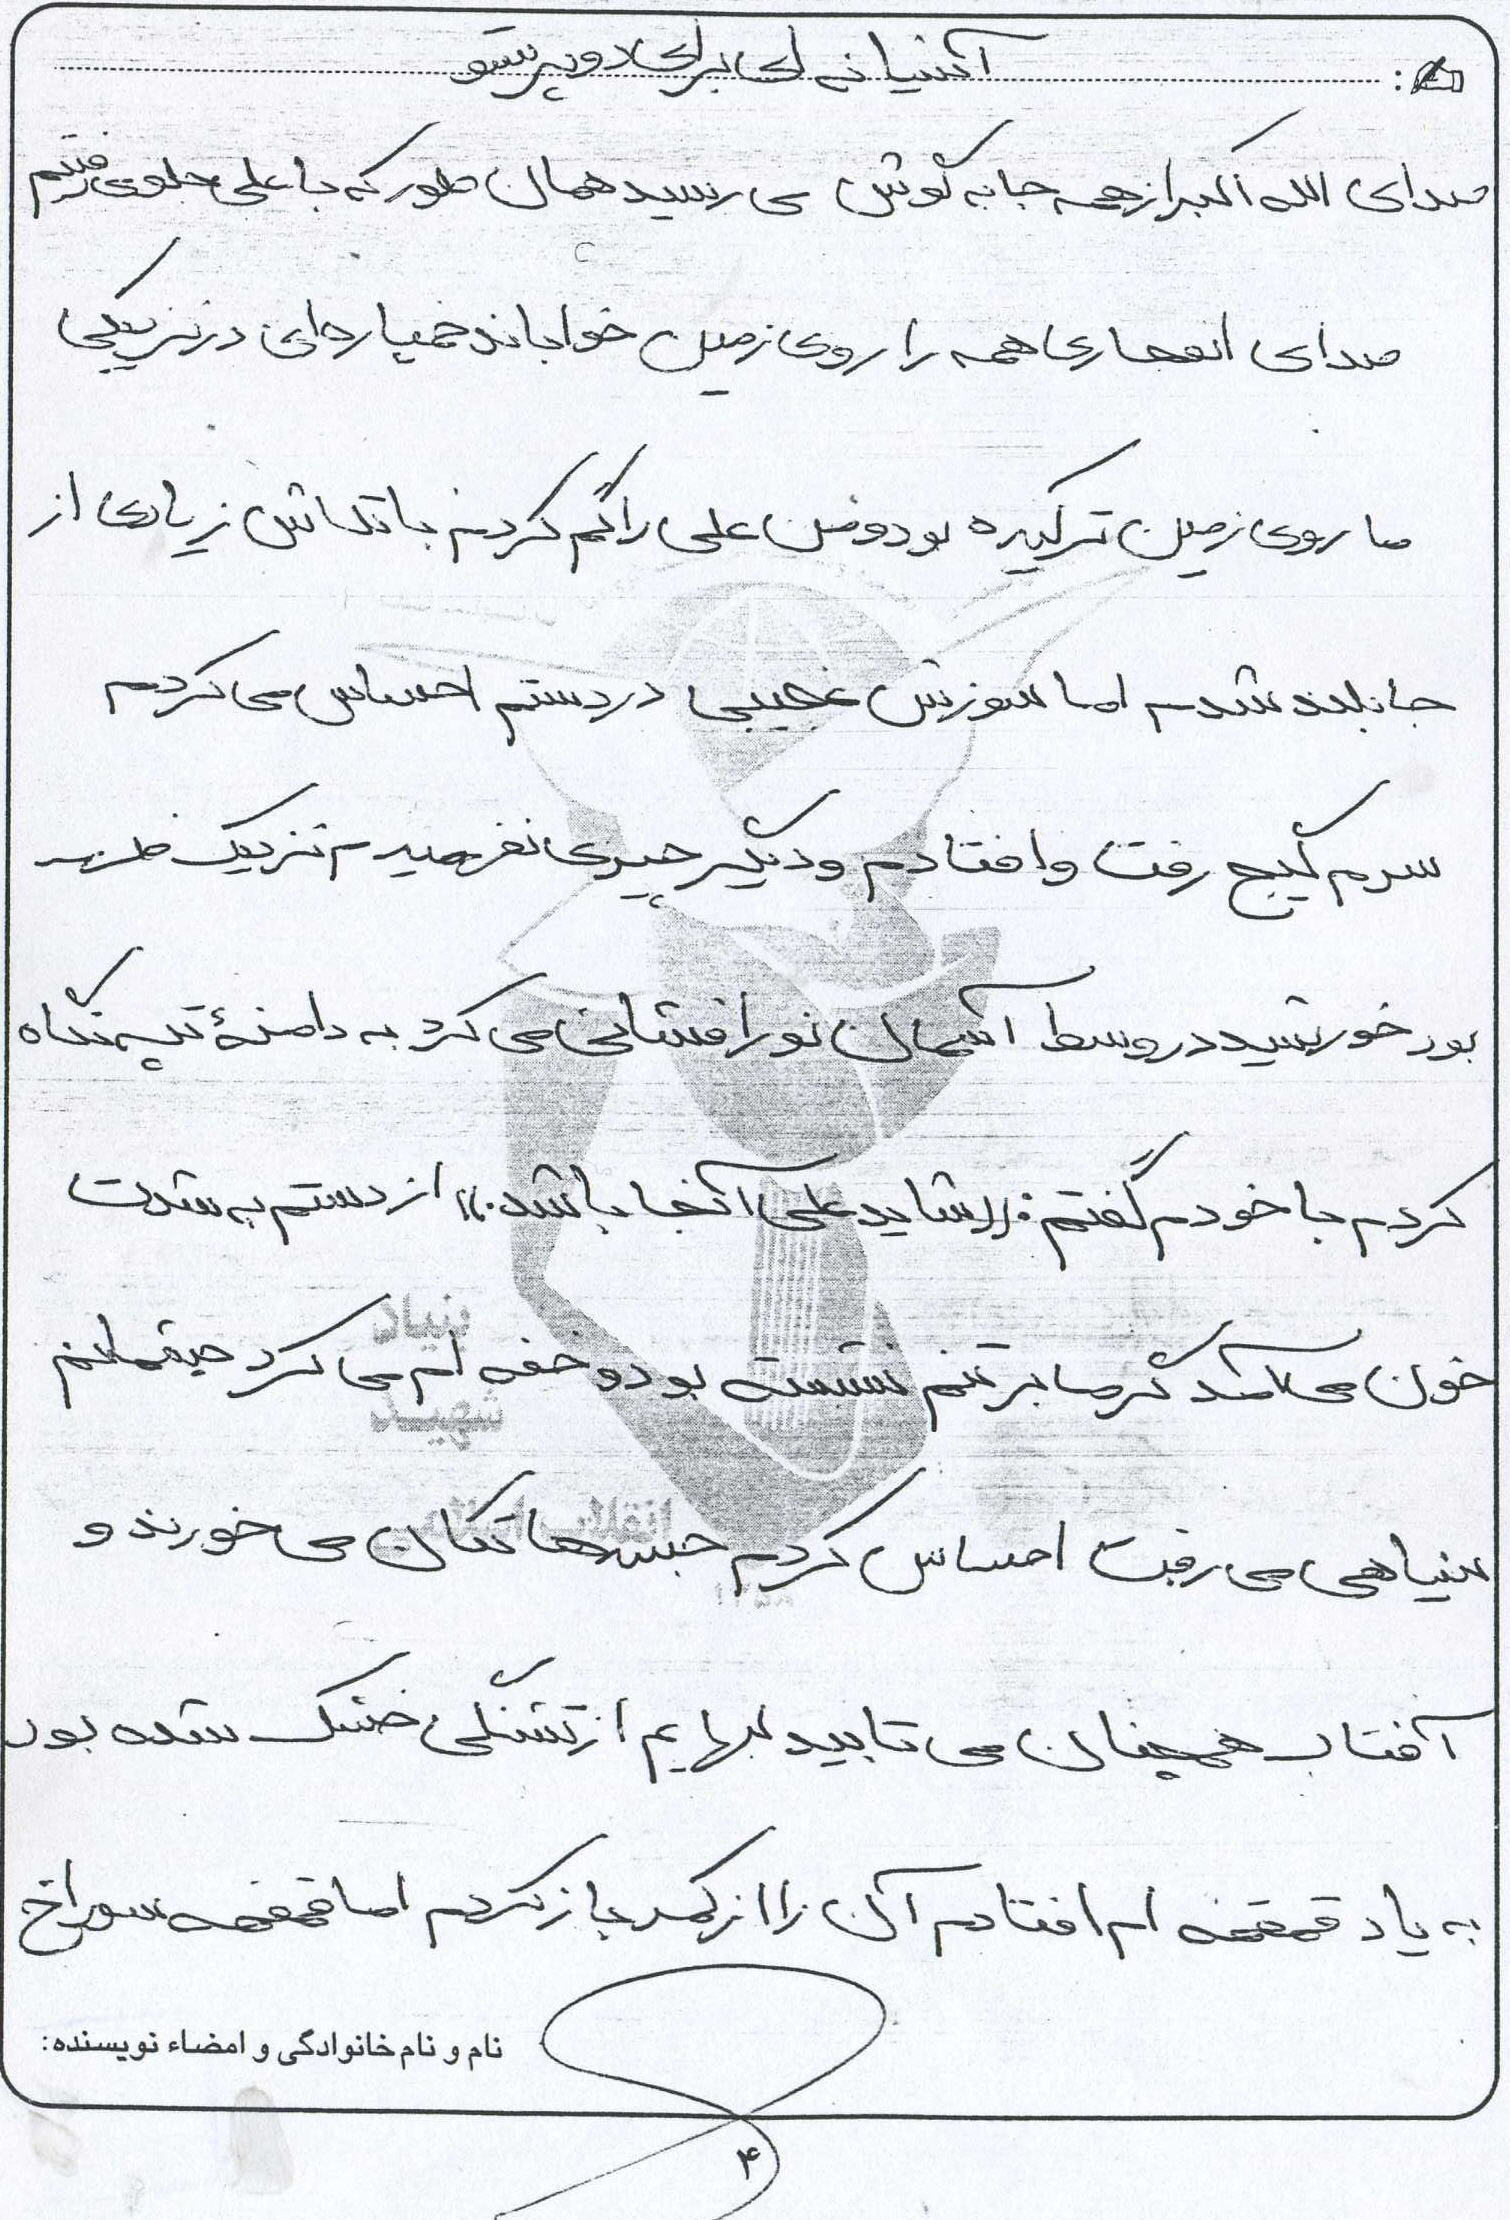 آشیانه ای برای دو پرستو
صدای الله اکبر از همه جا به گوش می رسید همان طور که با علی جلو می رفتیم
صدای انفجاری همه را روی زمین خواباند خمپاره ای در نزدیکی
ما روی زمین ترکیده بود و من علی را گم کردم با تلاش زیادی از
جا بلند شدم اما سوزش عجیبی در دستم احساس می کردم
سرم گیج رفت و افتادم و دیگر چیزی نفهمیدم نزدیک ظهر
بود خورشید در وسط آسمان نور افشانی می کرد به دامنهٔ تپه نگاه
کردم با خودم گفتم: ((شاید علی آنجا باشد.)) از دستم به شدت
خون می آمد گرما بر تنم نشسته بود و خفه ام می کرد چشمانم
سیاهی می رفت احساس کردم جسدها تکان می خورند و
آفتاب همچنان می تابید لبهایم از تشنگی خشک شده بود
به یاد قمقمه ام افتادم آن را از کمد باز کردم اما قمقمه سوراخ
بنیاد
شهید
انقلاب اسلامی
نام و نام خانوادگی و امضاء نویسنده:
۴